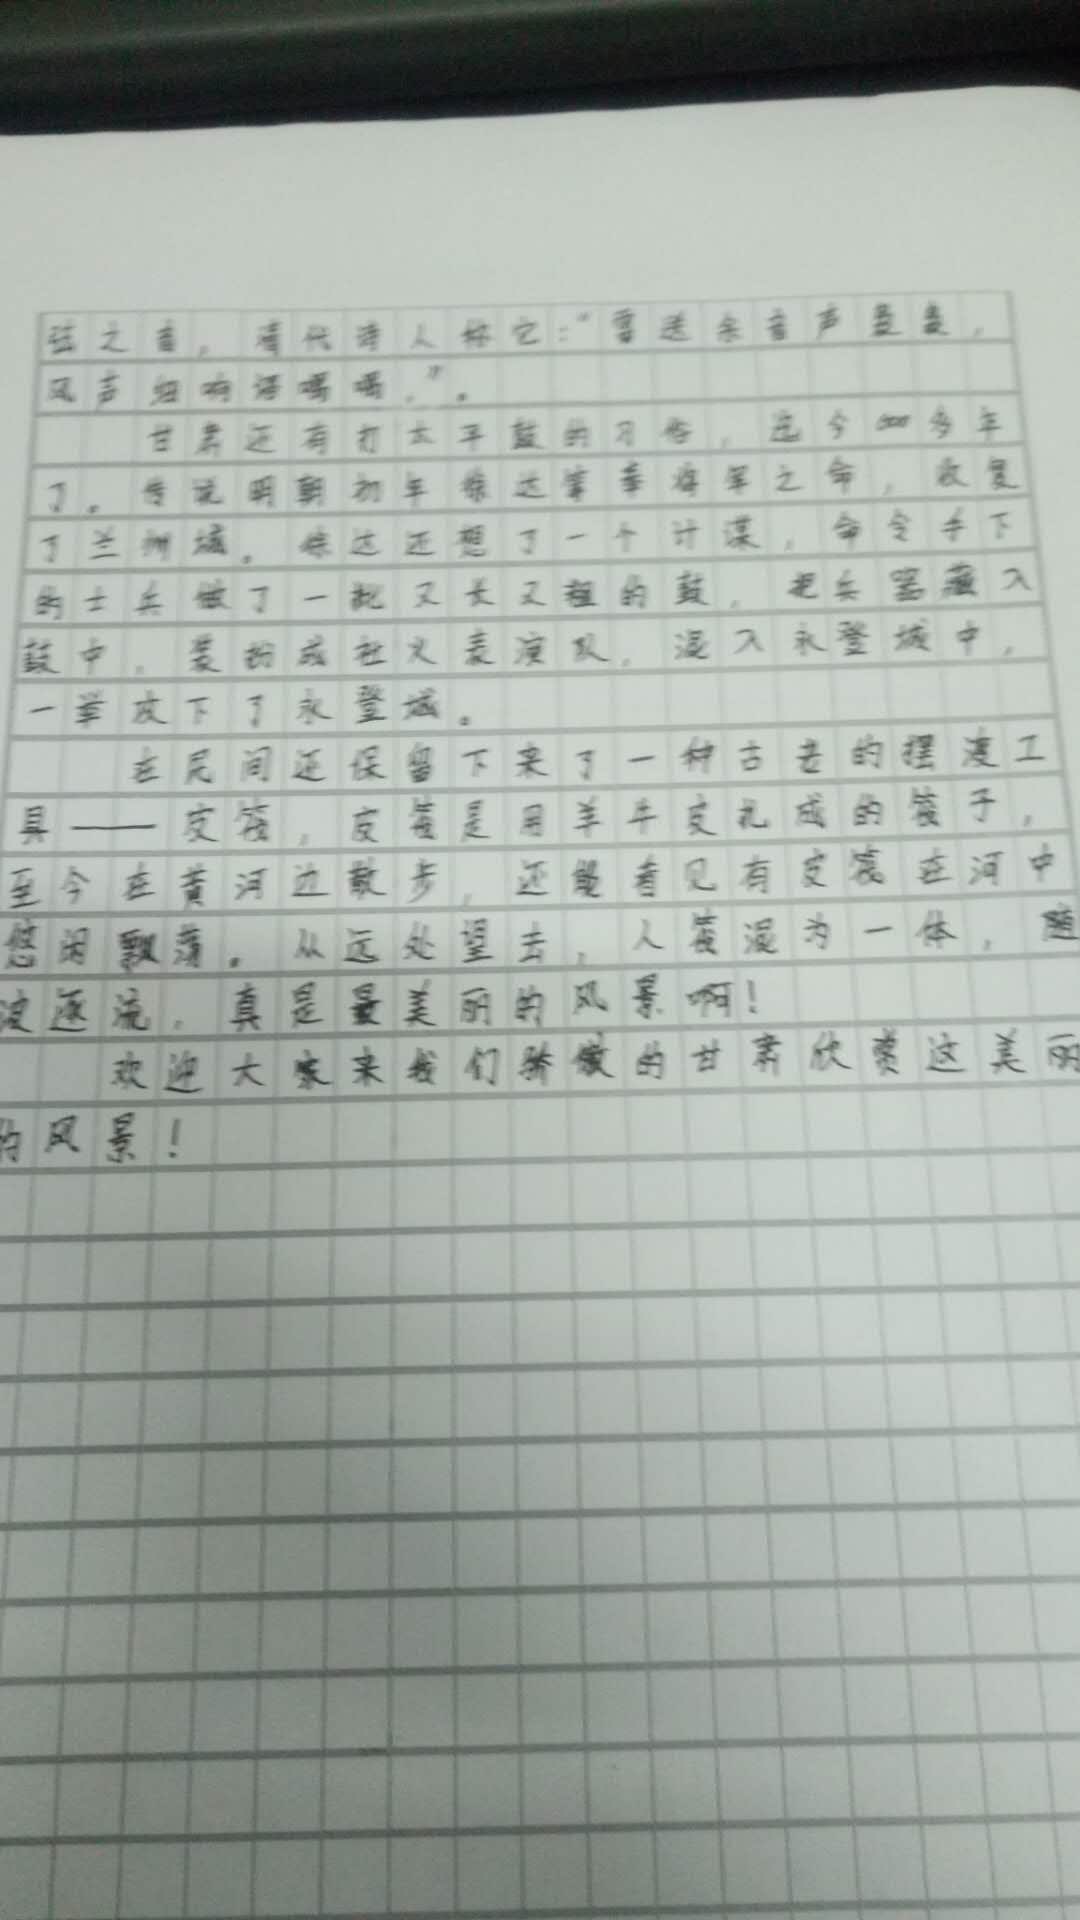 弦之音，清代诗人称它：“雷送余音声袅袅，
风声细响语喁喁．”。
甘肃还有打太平鼓的习俗，迄今600多年
了。传说明朝初年徐达常奉将军之命，收复
了兰州城。徐达还想了一个计谋，命令手下
的士兵做了一批又长又粗的鼓，把兵器藏入
鼓中，装扮成社火表演队，混入永登城中，
一举攻下了永登城。
在民间还保留下来了一种古老的摆渡工
具——皮筏，皮筏是用羊牛皮扎成的筏子，
至今在黄河边散步，还能看见有皮筏在河中
悠闲飘荡。从远处望去，人筏混为一体，随
波逐流，真是最美丽的风景啊！
欢迎大家来我们骄傲的甘肃欣赏这美丽
的风景！